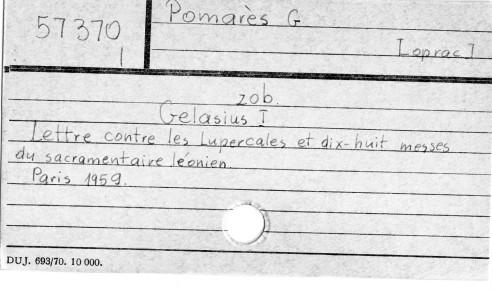 57370
I
Pomarès G
[oprac]
zob.
Gelasius I
Lettre contre les Lupercales et dix-huit messes
du sacramentaire léonien.
Paris 1959.
DUJ. 693/70. 10 000.